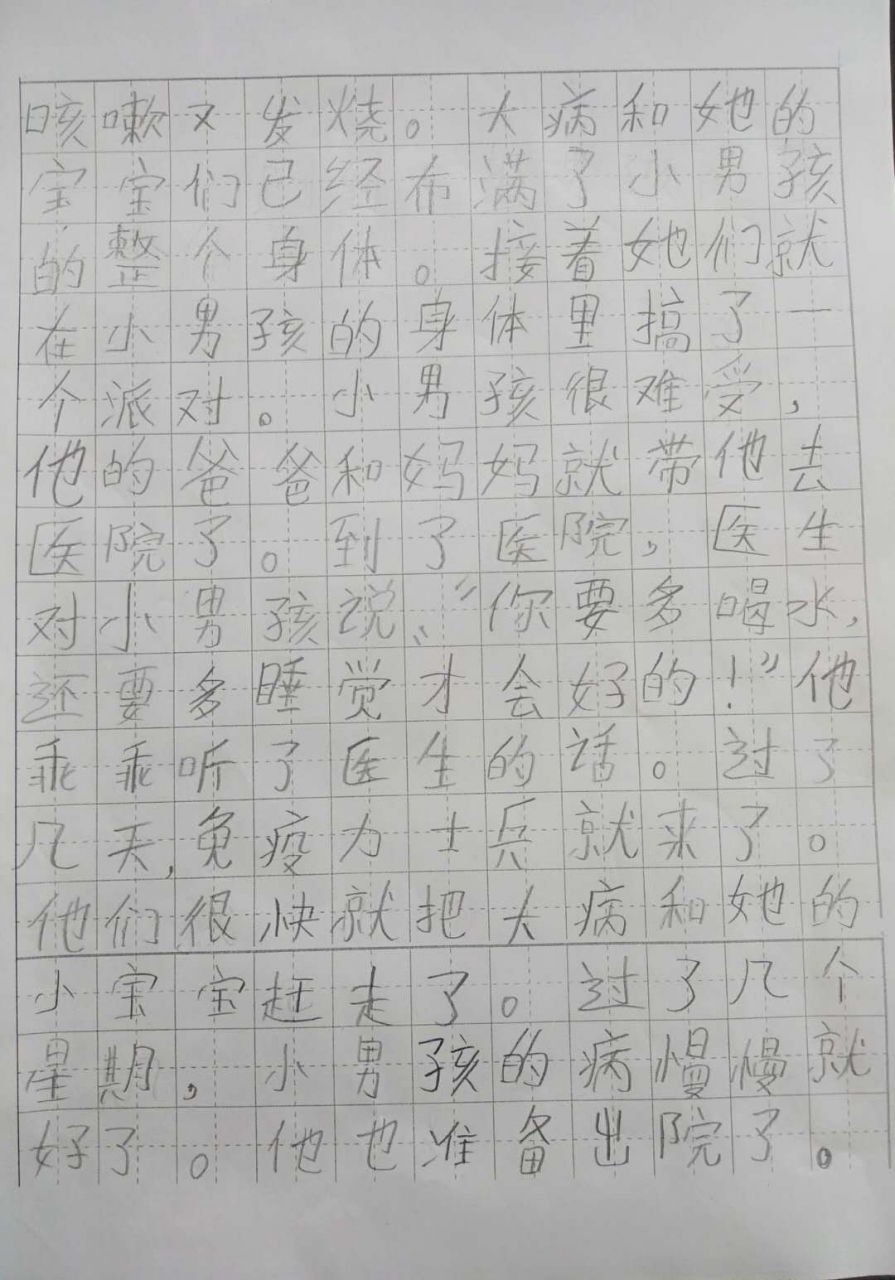 咳嗽又发烧。大病和她的
宝宝们已经布满了小男孩
的整个身体。接着她们就
在小男孩的身体里搞了一
个派对。小男孩很难受，
他的爸爸和妈妈就带他去
医院了。到了医院，医生
对小男孩说、“你要多喝水，
还要多睡觉才会好的！”他
乖乖听了医生的话。过了
几天，免疫力士兵就来了。
他们很快就把大病和她的
小宝宝赶走了。过了几个
星期，小男孩的病慢慢就
好了。他也准备出院了。